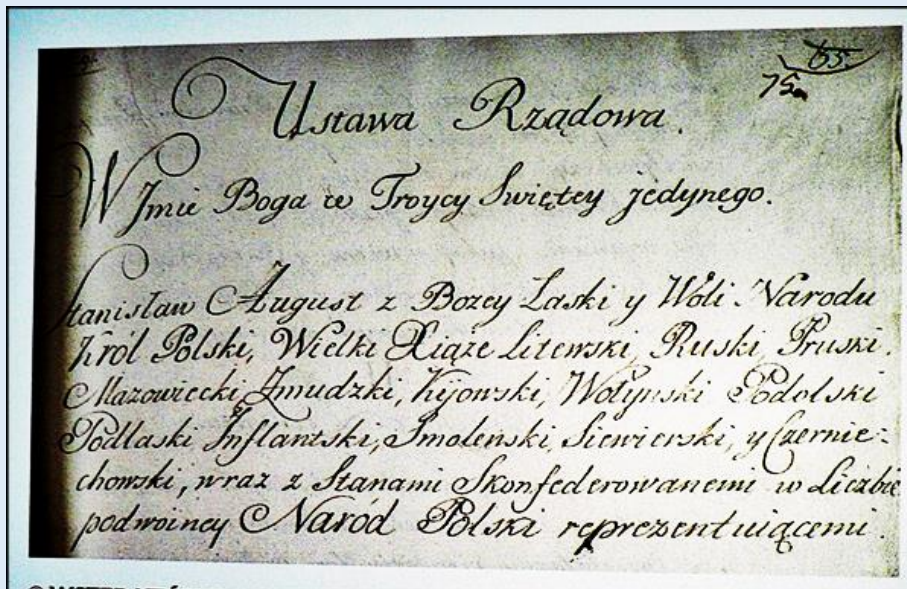 65.
75a
Ustawa Rządowa.
W Jmie Boga w Troycy Swiętey jedynego.
Stanisław August z Bozey Łaski y Woli Narodu
Król Polski, Wielki Xiąże Litewski, Ruski, Pruski,
Mazowiecki, Zmudzki, Kijowski, Wołynski Podolski
Podlaski Jnflantski, Smolenski, Siewierski, y Czernie-
chowski, wraz z Stanami Skonfederowanemi w Liczbie
podwoiney Naród Polski reprezentuiącemi.